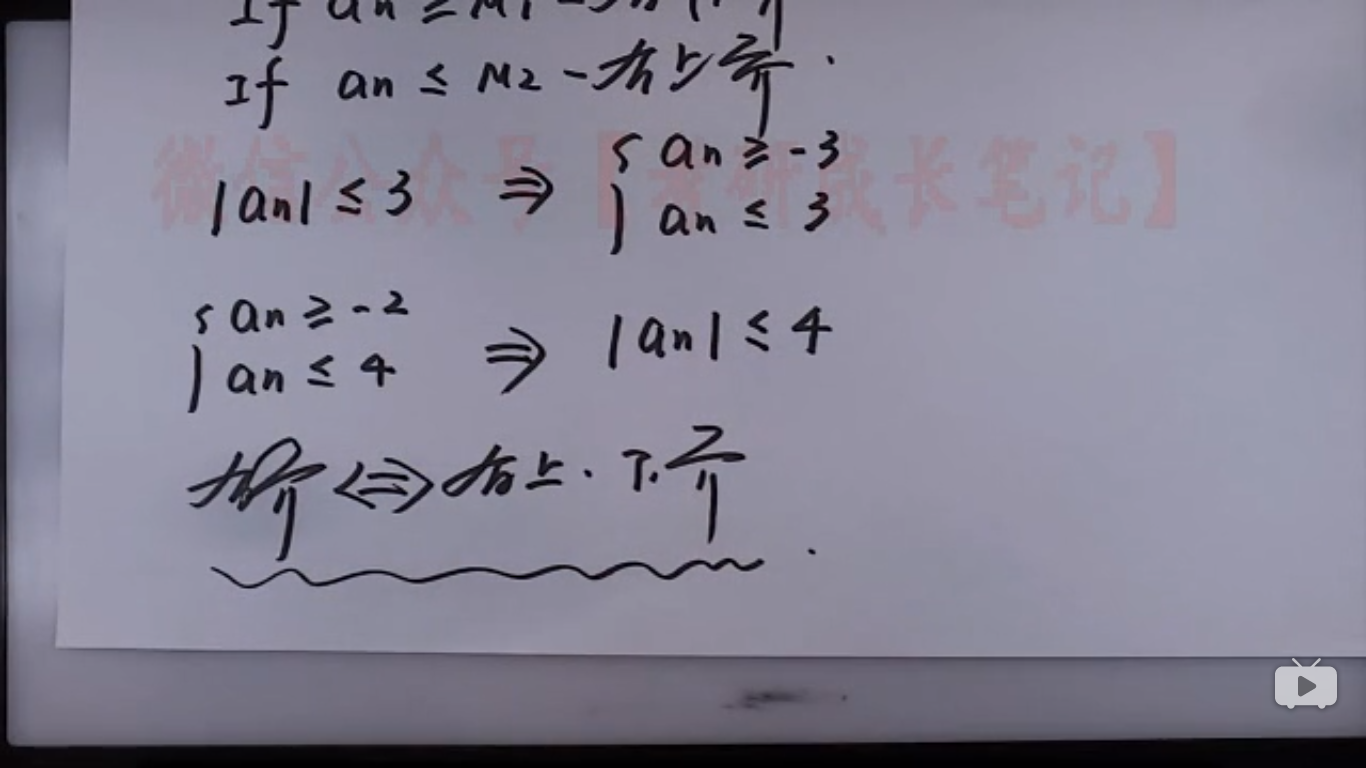 If an ≥ M1 -
If an ≤ M2 - 有上界.
微信公众号【考研成长笔记】
|an| ≤ 3 ⇒ { an ≥ -3
an ≤ 3
{ an ≥ -2
an ≤ 4 ⇒ |an| ≤ 4
有界 <=> 有上.下界.